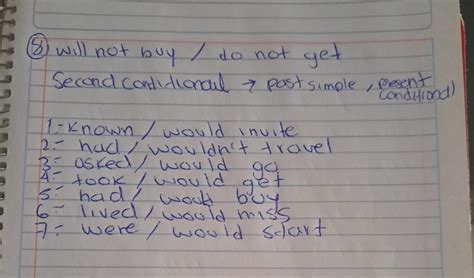 8 will not buy / do not get
Second Conditional → past simple, (present
conditional)
1.- known / would invite
2.- had / wouldn't travel
3.- asked / would go
4.- took / would get
5.- had / woub buy
6.- lived / would miss
7.- were / would start